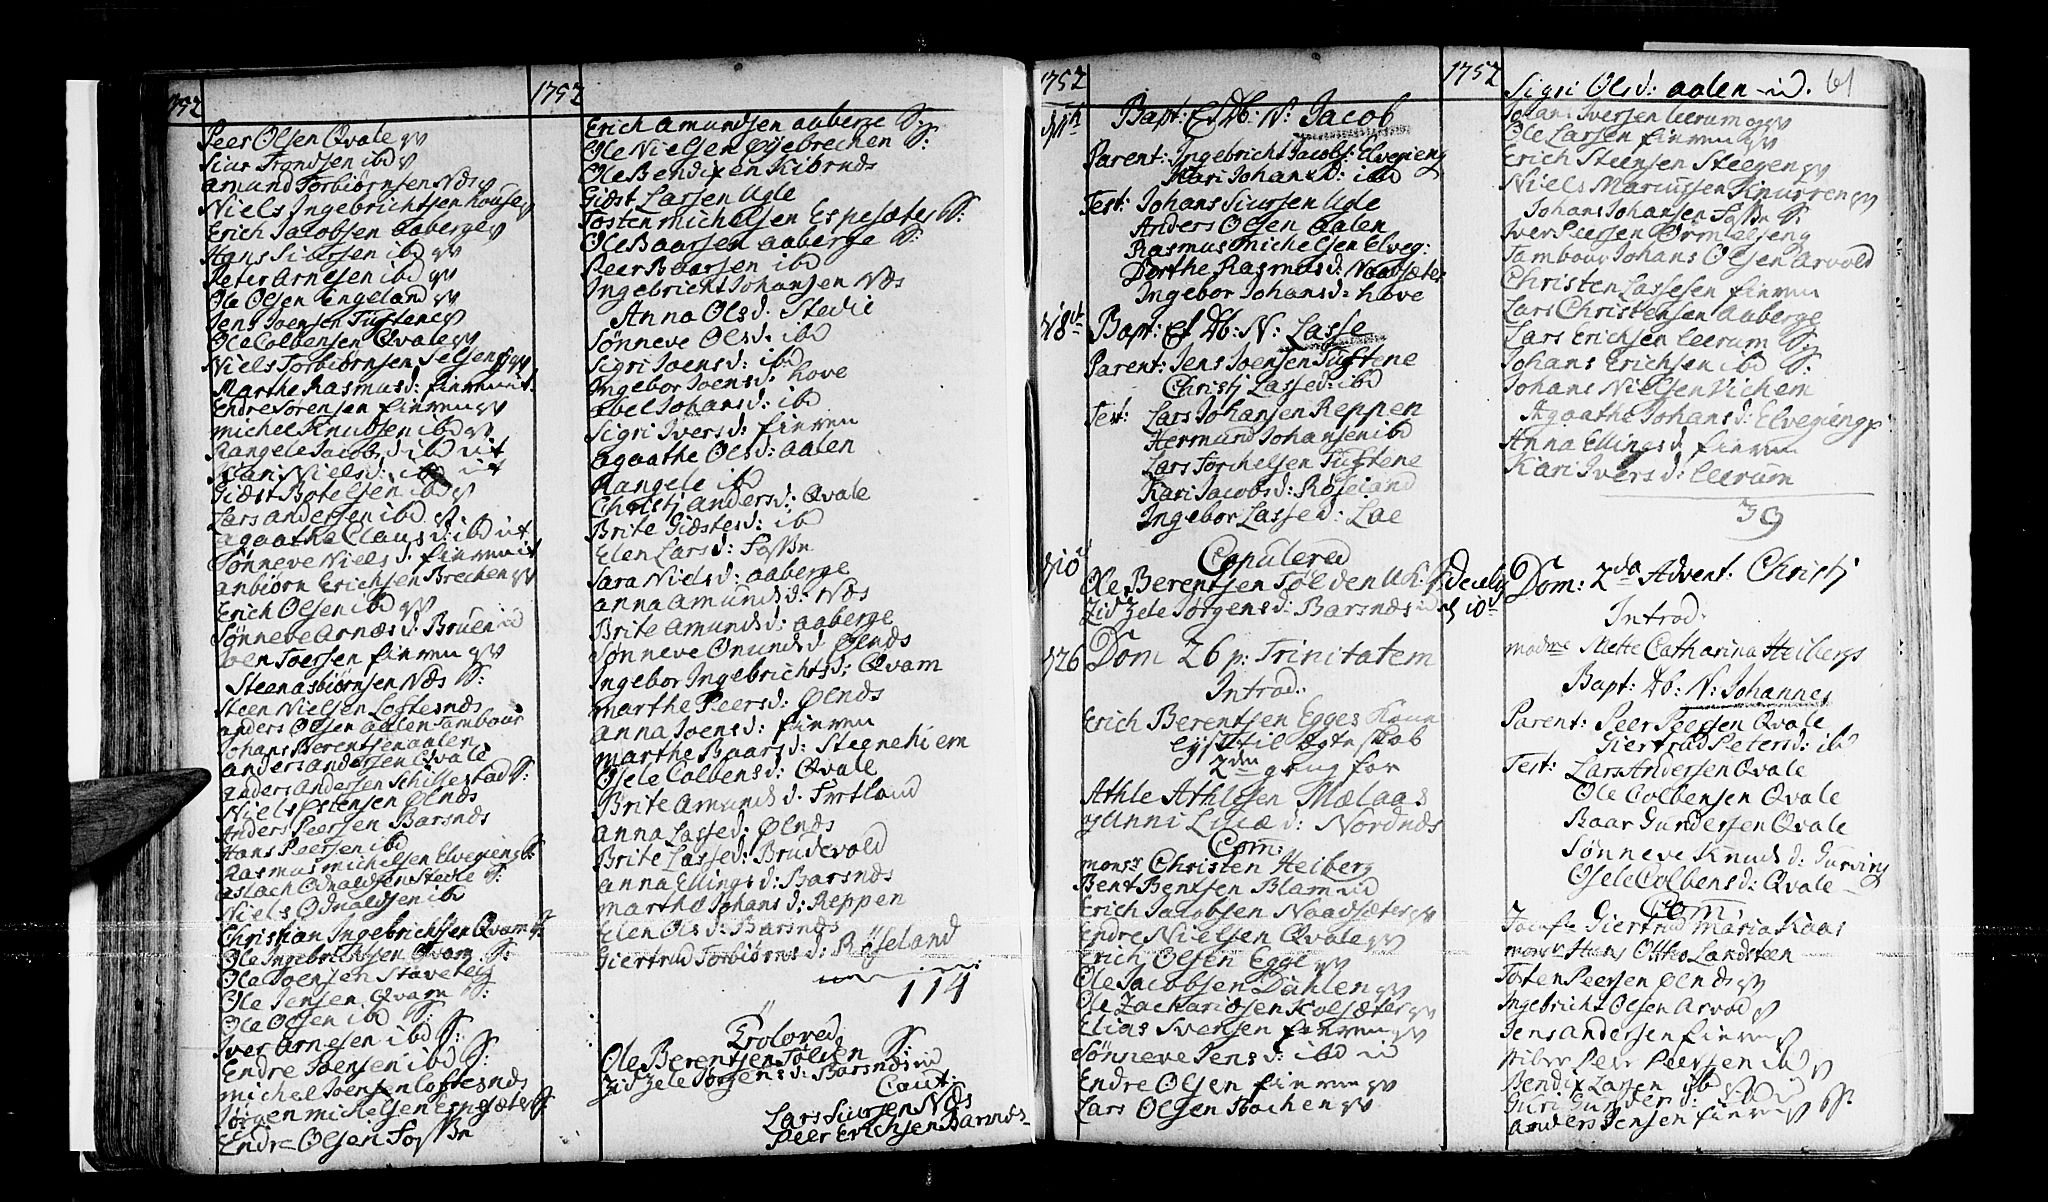 1752
Peer Olsen Qvale gv
Siur Trondsen ibd v
Amund Torbiørnsen Næs v
Niels Ingebrichtsen House v
Erich Jacobsen aaberge v
Hans Siursen ibd gv
Peter Arnesen ibd gv
Ole Olsen Engeland gv
Jens Joensen Tuftene gv
Ole Colbensen Qvale gv
Niels Torbiørnsen
Marthe Rasmusd: fimreit
Endre Sørensen fimren gv
Michel Knudsen ibd gv
Rangele Jacobsd ibd
Kari Nielsd: ibd
Giæst Botelsen ibd gv
Lars Andersen ibd gv
Agaathe Clausd: ibd
Sønneve Nielsd. fimren
Anbiørn Erichsen Brechen gv
Erich Olsen ibd gv
Sønneve Arnesd: Bruen
Joen Joersen fimren gv
Steenasbiørnsen Næs S:
Steen Nielsen Loftesnæs
Anders Olsen aalen Tambour
Johans Berentsen aalen
Anders Andersen Qvale
Anders Andersen Schillestad S:
Niels Østensen Ølnæs
Anders Peersen Barsnæs
Hans Peersen ibd
Rasmus Michelsen Elvegieng S:
Aslach Odnaldsen Stedie S:
Niels Odnaldsen ibd
Christian Ingebrichtsen Qvam
Ole Ingebrichtsen Qvam S:
Ole Joensen Staveteig
Ole Jensen Qvam S:
Ole Olsen ibd S:
Iver Arnesen ibd S:
Endre Joensen ibd S:
Michel Joensen Loftesnæs
Jørgen Michelsen Espesæter S:
Endre Olsen Fosse
1752
Erich Amundsen aaberge S:
Ole Nielsen Øyebrechen S:
Ole Bendixen Kiørnæs
Giæst Larsen Ugle
Tosten Michelsen Espesæter S:
Ole Baarsen aaberge S:
Peer Baarsen ibd
Ingebricht Johansen Næs
Anna Olsd: Stedie
Sønneve Olsd: ibd
Sigri Joensd: ibd
Ingebor Joensd: hove
Abel Johansd: ibd
Sigri Iversd: fimren
Agaathe Olsd: aalen
Rangele ibd
Christj Andersd: Qvale
Brite Giæstesd: ibd
Elen Larsd: Fosse
Sara Nielsd: aaberge
Anna Amundsd: Næs
Brite Amundsd: aaberge
Sønneve Omundsd Ølnæs
Ingebor Ingebrichtsd: Qvam
Marthe Peersd: Ølnæs
Anna Joensd: fimren
Marthe Baarsd: Steenehiem
Osele Colbensd: Qvale
Brite Amundsd.
Anna Lassed: Ølnæs
Brite Lassed: Brudevold
Anna Ellingsd: Barsnæs
Marthe Johansd: Reppen
Elen Olsd: Barsnæs
Giertrud Torbiørnsd: Røseland
114
Troloved
Ole Berentsen Tølden S:
Zidzele Jørgensd: Barsnæs
Caut:
Lars Siursen Næs
Peer Erichsen Barsnæs
1752
Bapt: Et Db: N: Jacob
Parent: Ingebricht Jacobs: Elvegieng
Kari Johansd: ibd
Test: Johans Siursen Ugle
Anders Olsen aalen
Rasmus Michelsen Elveg:
Dorthe Rasmusd: Naadsæter
Ingebor Johansd: hove
Bapt: Et Db: N: Lasse
Parent: Jens Joensen Tuftene
Christj Lassed: ibd
Test: Lars Johansen Reppen
Hermund Johansen ibd
Lars Torchelsen Tuftene
Kari Jacobsd: Røseland
Ingebor Lassed: Lae
Copulered
Ole Berentsen Tølden
Zidzele Jørgensd: Barsnæs
26 Dom 26 p: Trinitatem
Introd:
Erich Berentsen Egges Kone
Lyst til Ægteskab
2den gang for
Athle Athlesen Mælaas
og Anni Lucæd: Nordnæs
Com:
Monsr Christen Heiberg
Bent Bentsen Blam
Erich Jacobsen Naadsæter gv
Endre Nielsen Qvale gv
Erich Olsen Egge gv
Ole Jacobsen Dahlen gv
Ole Zachariæsen Kolsæter gv
Elias Svensen fimren gv
Sønneve Jensd: ibd
Endre Olsen fimren gv
Lars Olsen Stachen gv
1752
61
Sigri Olsd: aalen
Johans Iversen Leerum gv
Ole Larsen fimren gv
Erich Steensen Steegen gv
Niels Marcussen Knurren gv
Johans Johansen Fosse S:
Iver Peersen Ormelseng
Tambour Johans Olsen Arvold
Christen Lassesen fimren
Lars Christensen aaberge
Lars Erichsen Leerum S:
Johans Erichsen ibd S:
Johans Nielsen Vichem
Agaathe Johansd: Elvegieng
Anna Ellingsd fimren
Kari Iversd: Leerum
39
Dom: 2da Advent: Christj
Introd:
Madme Mette Catharina Heibergs
Bapt: Db: N: Johannes
Parent: Peer Peersen Qvale
Giertrud Petersd: ib
Test: Lars Andersen Qvale
Ole Colbensen Qvale
Baar Gundersen Qvale
Sønneve Knudsd:
Osele Colbensd: Qvale
Com:
Jomfr Giertrud Maria Kaas
Monsr Hans Ottho Landsteen
Tosten Peersen Ølnæs gv
Ingebricht Olsen Arvold gv
Jens Andersen fimren gv
Peer Peersen ibd gv
Bendix Larsen ibd
Guri Gundersd: ibd
Anders Jensen fimren gv S: